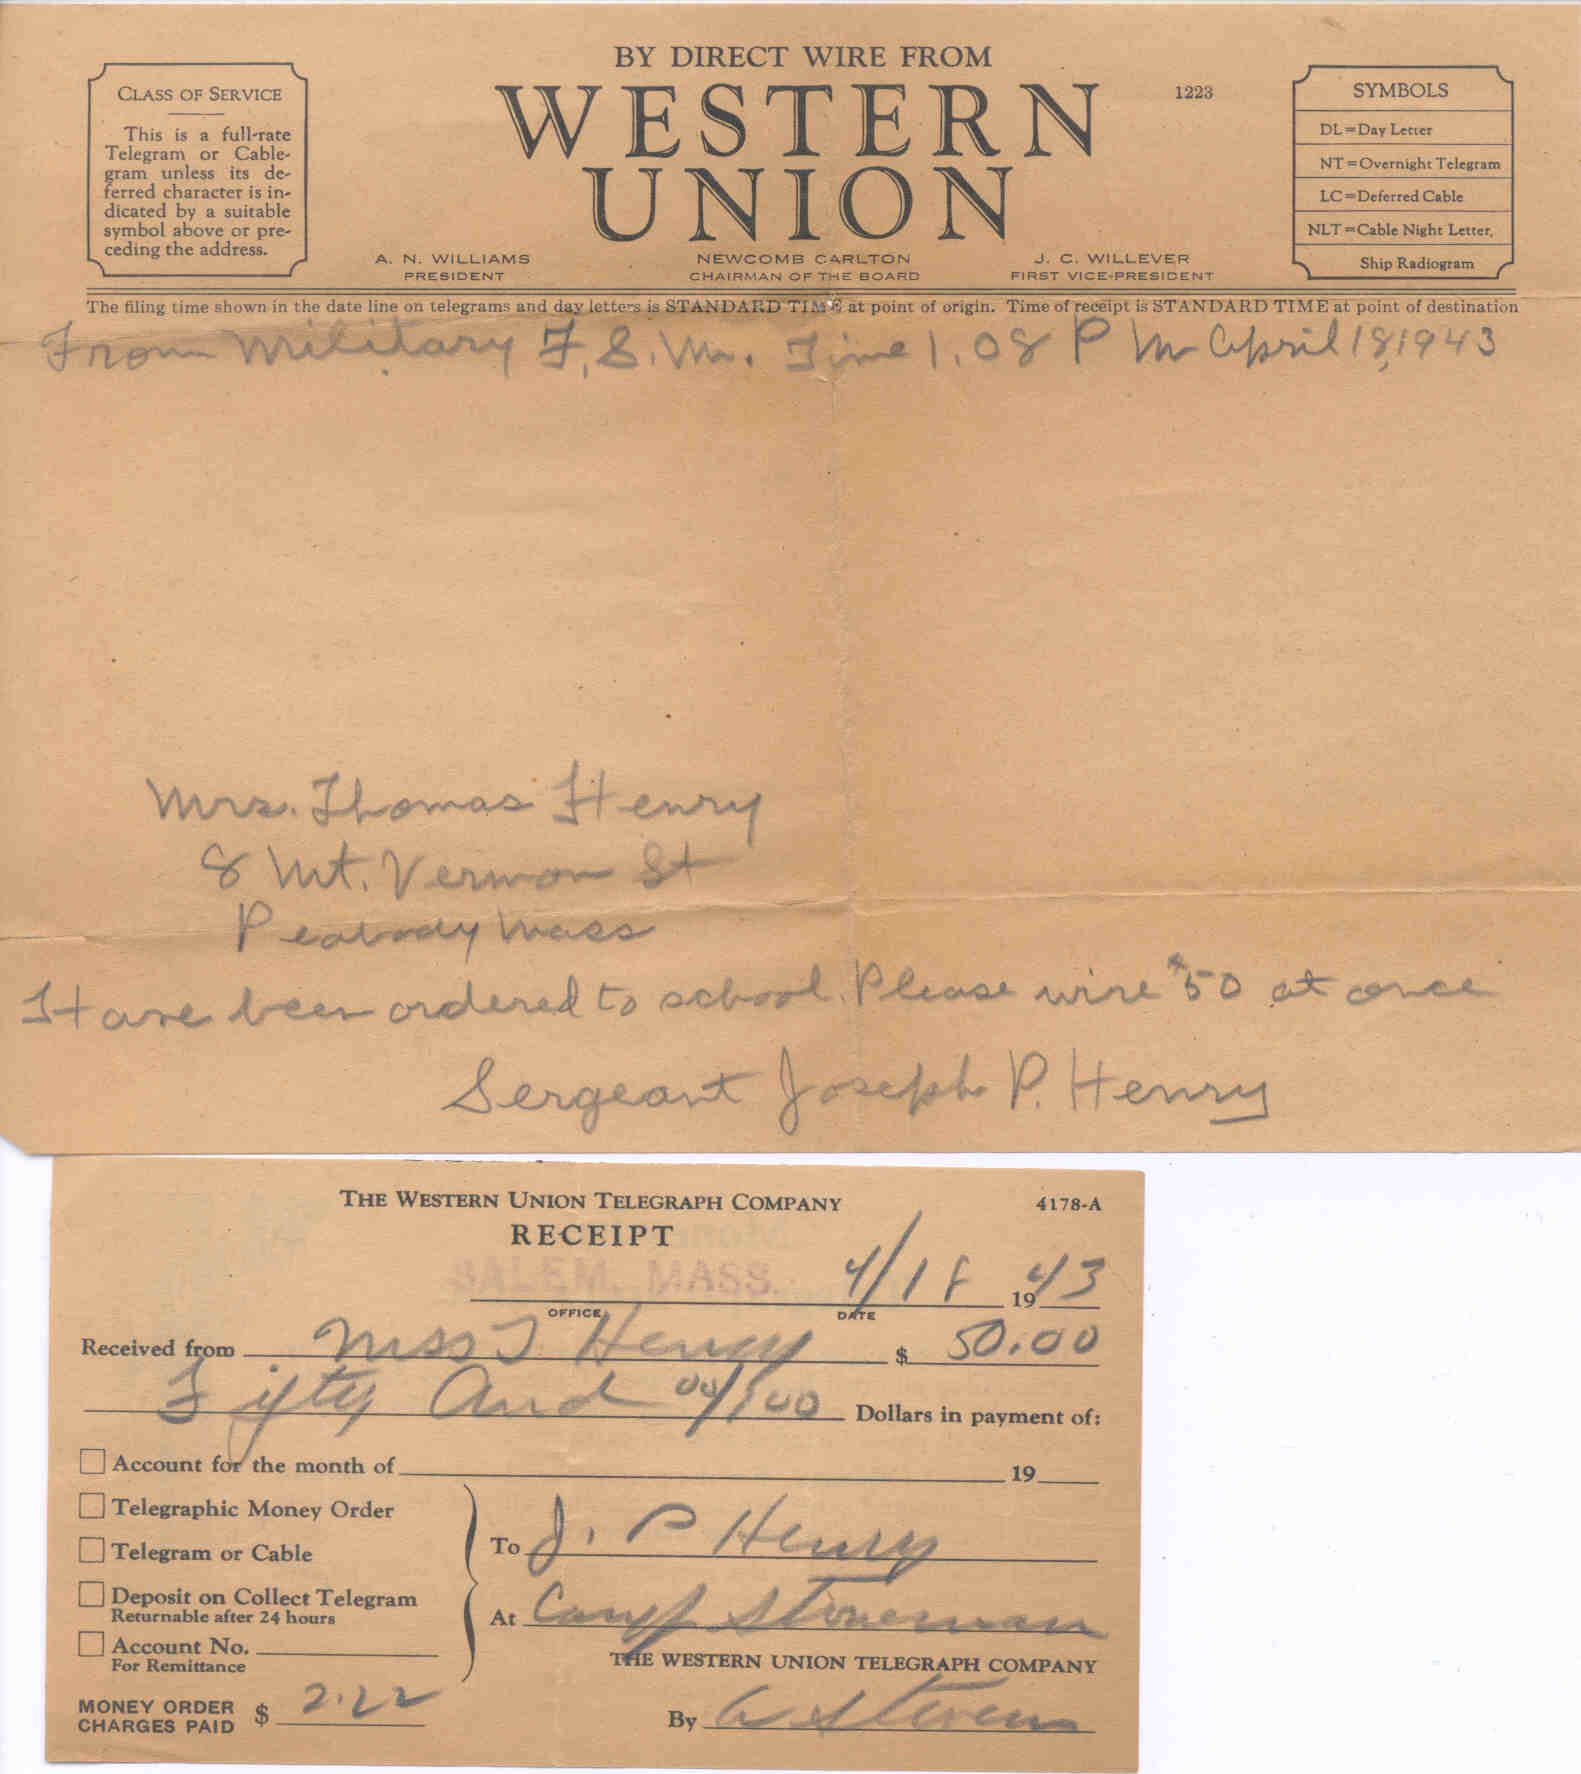 BY DIRECT WIRE FROM
WESTERN
UNION
1223
CLASS OF SERVICE
This is a full-rate
Telegram or Cable-
gram unless its de-
ferred character is in-
dicated by a suitable
symbol above or pre-
ceding the address.
A. N. WILLIAMS
PRESIDENT
NEWCOMB CARLTON
CHAIRMAN OF THE BOARD
J. C. WILLEVER
FIRST VICE-PRESIDENT
SYMBOLS
DL=Day Letter
NT=Overnight Telegram
LC=Deferred Cable
NLT=Cable Night Letter,
Ship Radiogram
The filing time shown in the date line on telegrams and day letters is STANDARD TIME at point of origin. Time of receipt is STANDARD TIME at point of destination
From Military F.S.M. Time 1.08 P M April 18, 1943
Mrs. Thomas Henry
8 Mt. Vernon St
Peabody Mass
Have been ordered to school. Please wire $50 at once
Sergeant Joseph P. Henry
THE WESTERN UNION TELEGRAPH COMPANY
4178-A
RECEIPT
SALEM, MASS.
4/18 1943
OFFICE
DATE
Received from Miss T Henry $ 50.00
Fifty And 00/100 Dollars in payment of:
Account for the month of 19
Telegraphic Money Order
Telegram or Cable
Deposit on Collect Telegram
Returnable after 24 hours
Account No.
For Remittance
To J. P Henry
At Camp Stoneman
THE WESTERN UNION TELEGRAPH COMPANY
MONEY ORDER
CHARGES PAID $ 2.22
By A Stevens